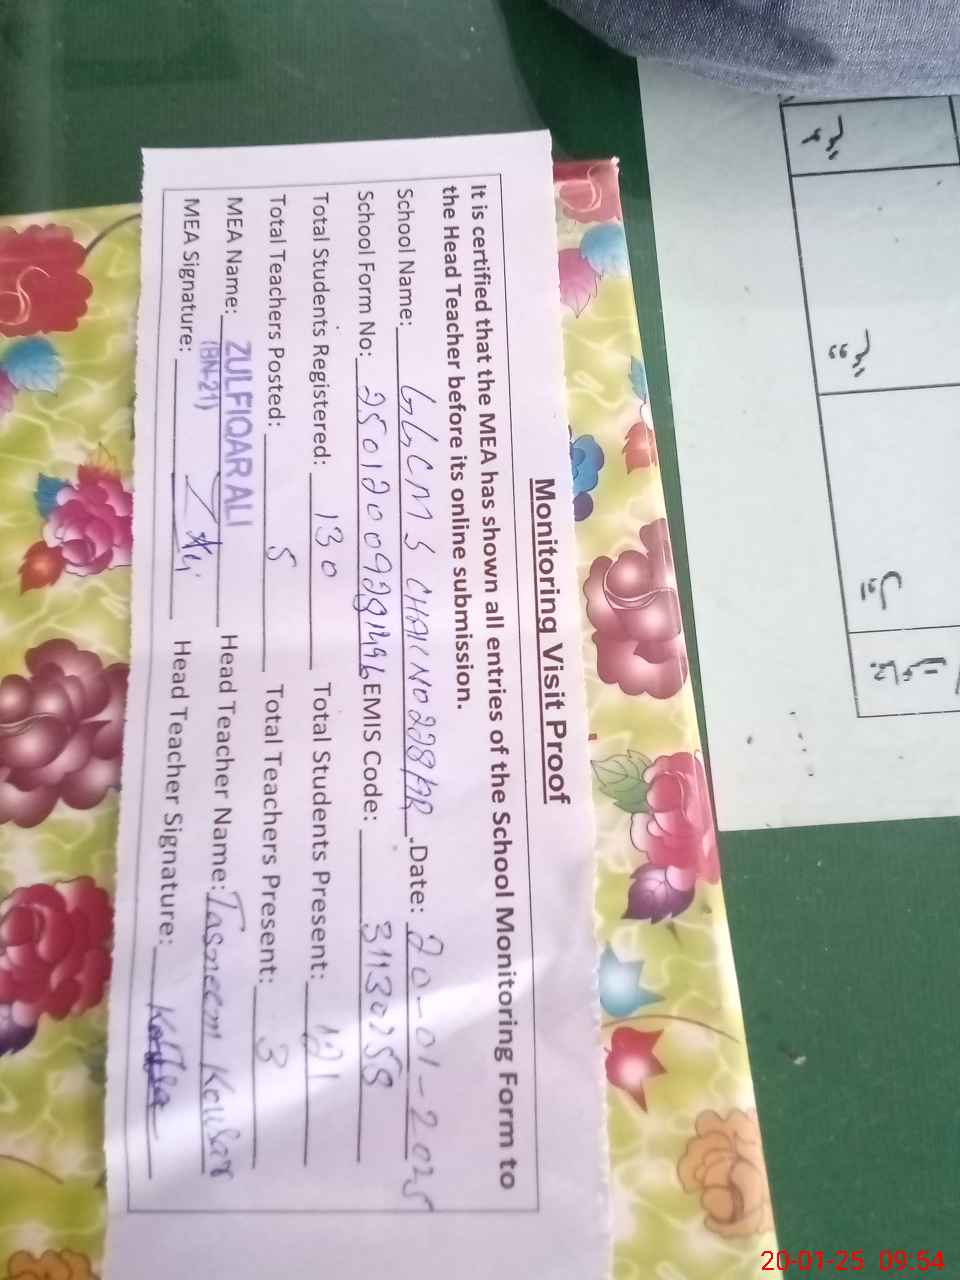 Monitoring Visit Proof
It is certified that the MEA has shown all entries of the School Monitoring Form to
the Head Teacher before its online submission.
School Name: GGCMS CHAK NO 228/9R. Date: 20-01-2025
School Form No: EMIS Code: 31130258
Total Students Registered: 130 Total Students Present: 121
Total Teachers Posted: 5 Total Teachers Present: 3
MEA Name: ZULFIQAR ALI Head Teacher Name: Tasneem Kousar
(BN-21)
MEA Signature: Head Teacher Signature:
20-01-25 09:54